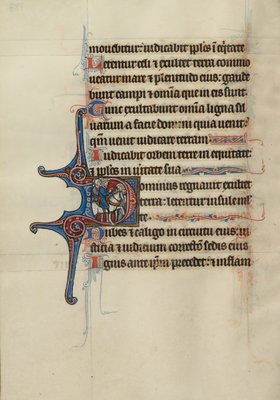 mouebitur: iudicabit pplos in eqitate.
Letentur celi & exultet terra commo
ueatur mare & plenitudo eius: gaude
bunt campi & omnia que in eis sunt.
Tunc exultabunt omnia ligna sil
uarum a facie dni: quia uenit:
qm uenit iudicare terram
Iudicabit orbem terre in equitate:
& pplos in ueritate sua
Dominus regnauit exultet
terra: letentur insule ml
te.
Nubes & caligo in circuitu eius: ius
ticia & iudicium correctio sedis eius
Ignis ante ipm precedet: & inflam